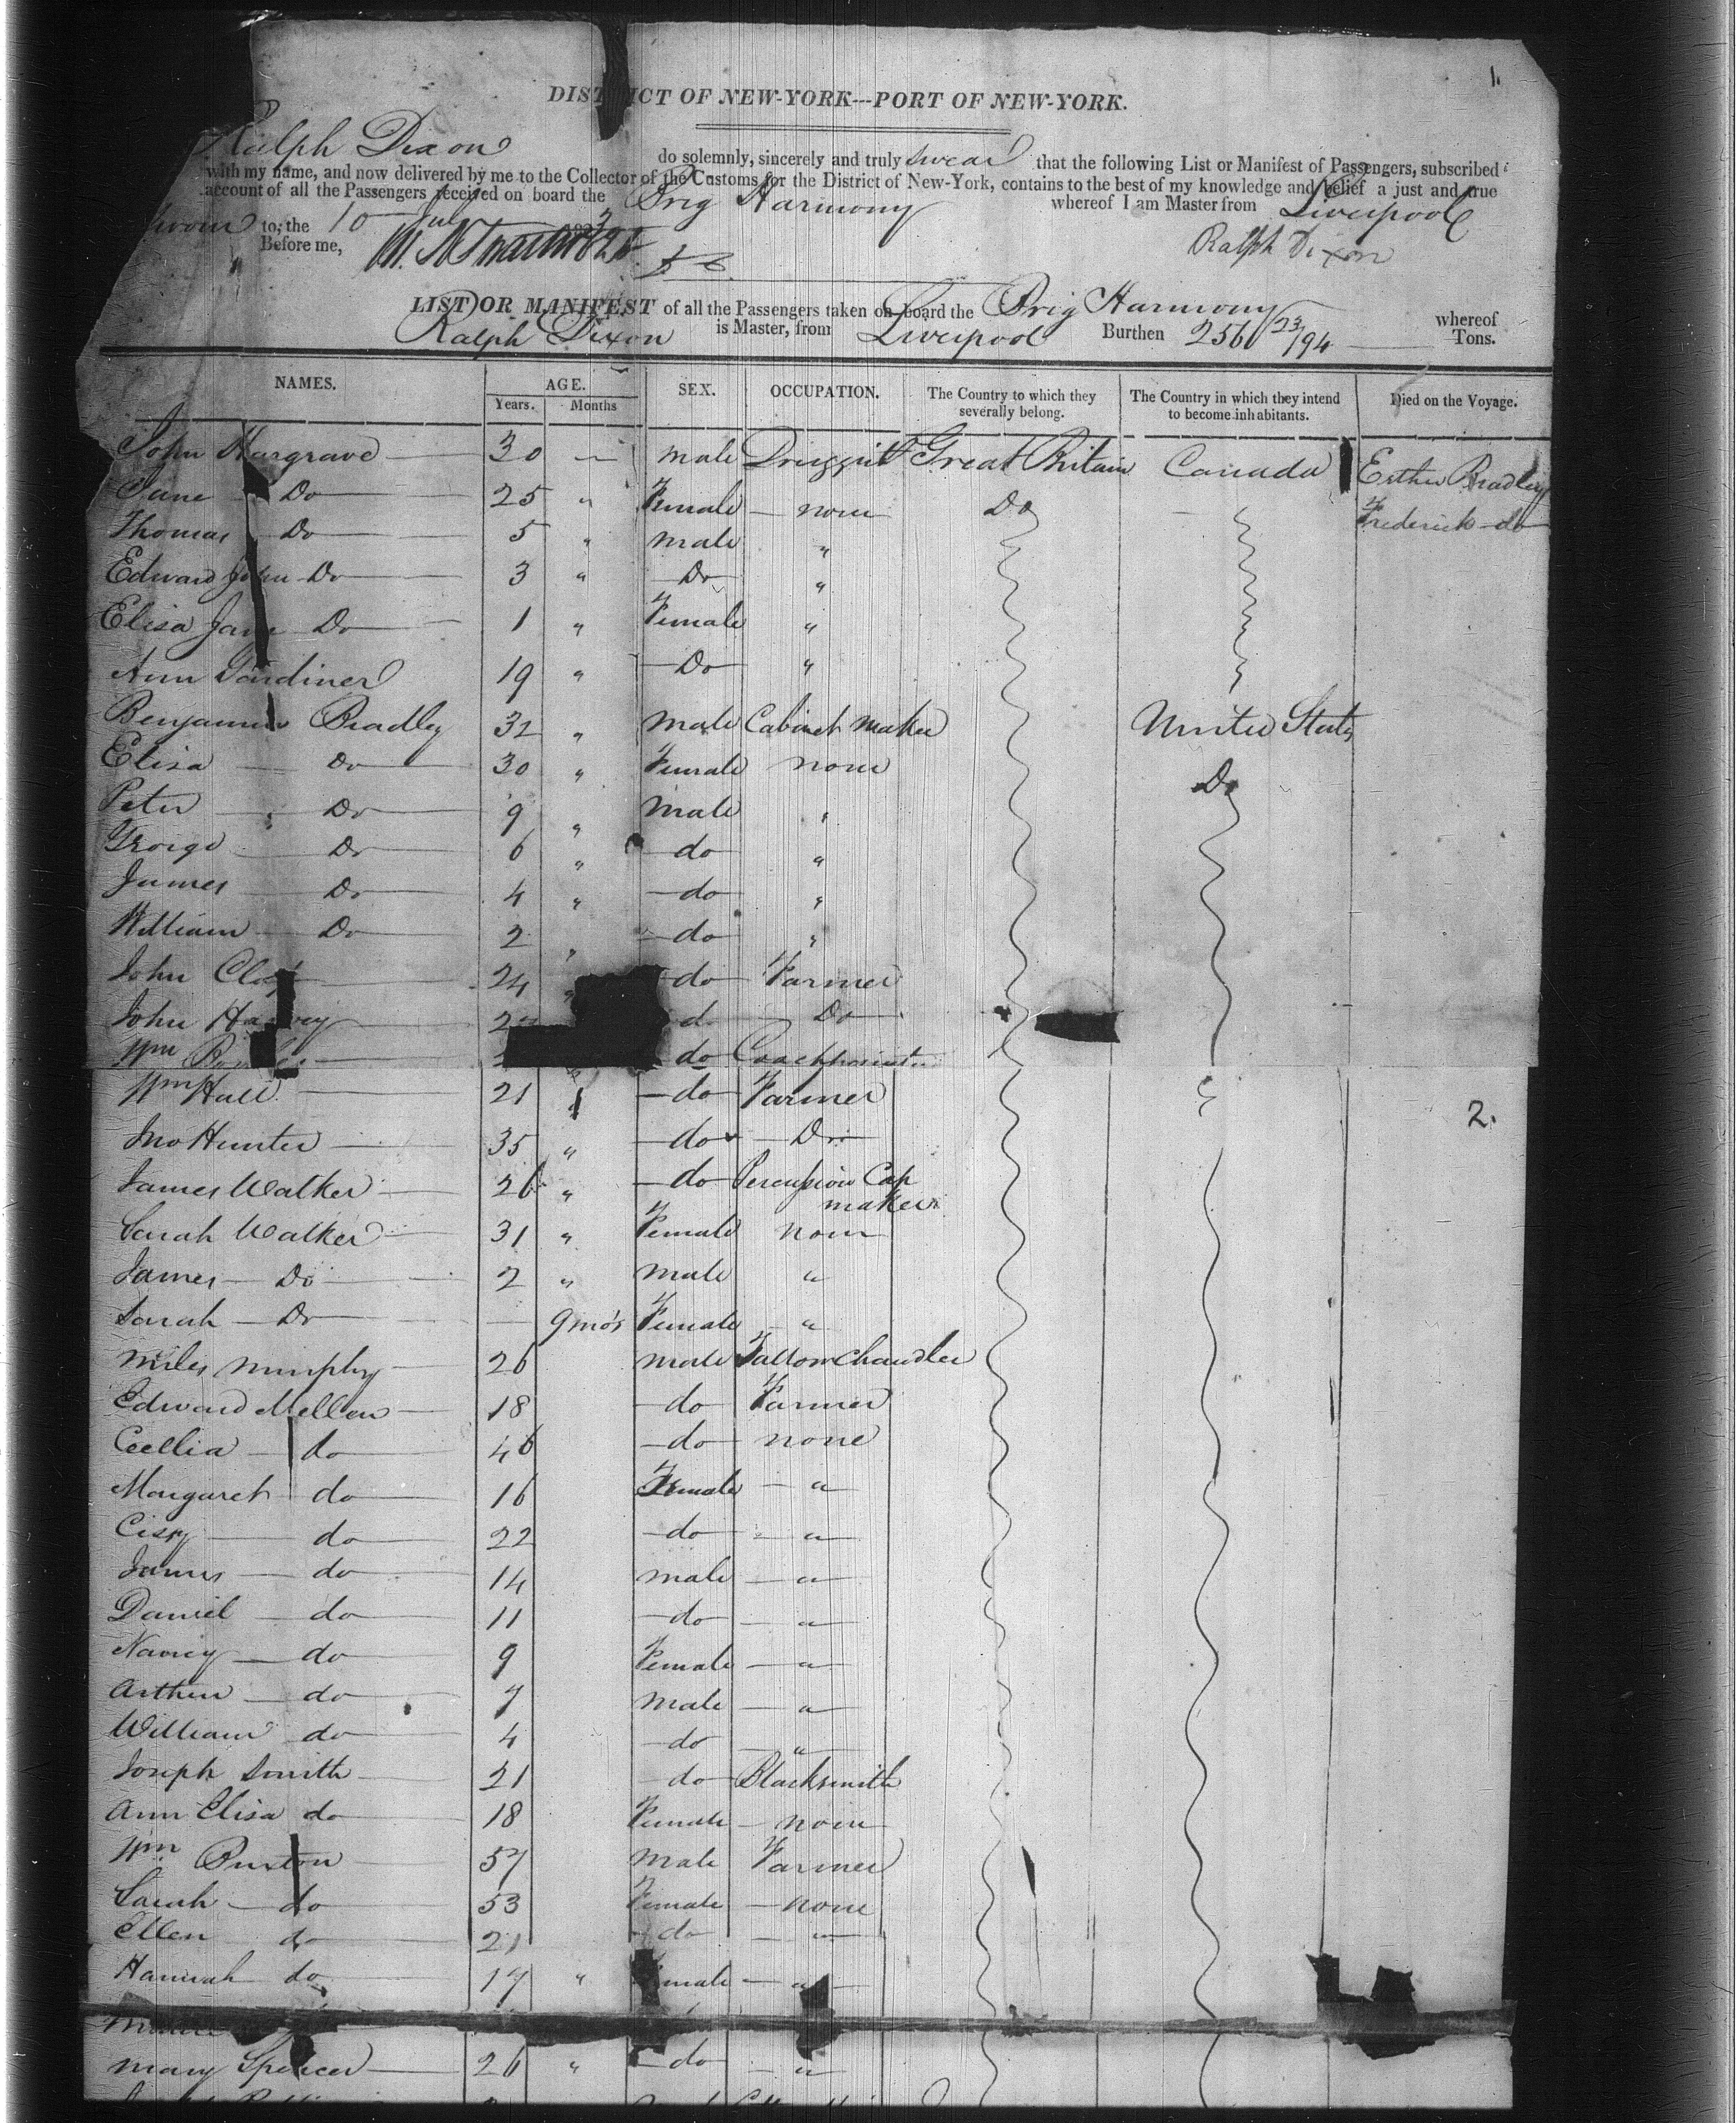 1.
DISTRICT OF NEW-YORK---PORT OF NEW-YORK.
Ralph Dixon do solemnly, sincerely and truly swear that the following List or Manifest of Passengers, subscribed
with my name, and now delivered by me to the Collector of the Customs for the District of New-York, contains to the best of my knowledge and belief a just and true
account of all the Passengers received on board the Brig Harmony whereof I am Master from Liverpool
Sworn to, the 10 July
Before me, Ralph Dixon
LIST OR MANIFEST of all the Passengers taken on board the Brig Harmony whereof
Ralph Dixon is Master, from Liverpool Burthen 256 23/94 Tons.
NAMES. AGE. SEX. OCCUPATION. The Country to which they severally belong. The Country in which they intend to become inhabitants. Died on the Voyage.
Years. Months
John Hargrave 30 — male Druggist Great Britain Canada Esther Bradley
Jane Do 25 " Female none Do Frederick do
Thomas Do 5 " male "
Edward John Do 3 " Do "
Elisa Jane Do 1 " Female "
Ann Gardiner 19 " Do "
Benjamin Bradley 32 " male Cabinet maker United States
Elisa Do 30 " Female none Do
Peter Do 9 " male "
George Do 6 " do "
James Do 4 " do "
William Do 2 " do "
John 24 " do Farmer
John Harvey do Do
Wm do Coachpainter
Wm Hall 21 " do Farmer
2.
Jno Hunter 35 " do Do
James Walker 26 " do Percussion Cap
maker
Sarah Walker 31 " Female none
James Do 2 " male "
Sarah Do — 9 mo's Female "
Miles Murphy 26 male Tallow Chandler
Edward Mellon 18 do Farmer
Cecllia do 46 do none
Margaret do 16 Female "
Cissy do 22 do "
James do 14 male "
Daniel do 11 do "
Nancy do 9 Female "
Arthur do 7 male "
William do 4 do "
Joseph Smith 21 do Blacksmith
Ann Elisa do 18 Female none
Wm Buxton 57 male Farmer
Sarah do 53 Female none
Ellen do 21 do "
Hannah do 17 " Female "
Mary Spencer 26 " do "